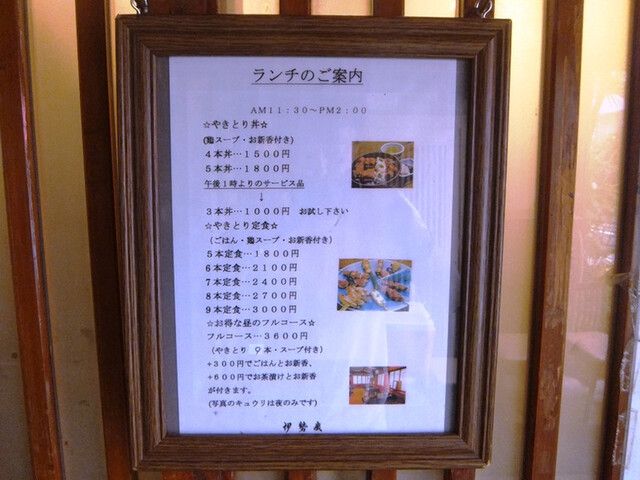 ランチのご案内
AM11:30～PM2:00
☆やきとり丼☆
(鶏スープ・お新香付き)
4本丼…1500円
5本丼…1800円
午後1時よりのサービス品
↓
3本丼…1000円 お試し下さい
☆やきとり定食☆
(ごはん・鶏スープ・お新香付き)
5本定食…1800円
6本定食…2100円
7本定食…2400円
8本定食…2700円
9本定食…3000円
☆お得な昼のフルコース☆
フルコース…3600円
(やきとり 9本・スープ付き)
+300円でごはんとお新香、
+600円でお茶漬けとお新香
が付きます。
(写真のキュウリは夜のみです)
伊勢廣